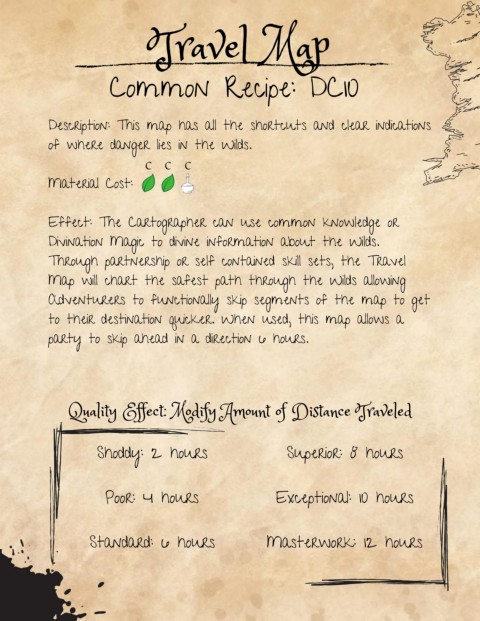 Travel Map
Common Recipe: DC10
Description: This map has all the shortcuts and clear indications
of where danger lies in the wilds.
C C C
Material Cost:
Effect: The Cartographer can use common knowledge or
Divination Magic to divine information about the wilds.
Through partnership or self contained skill sets, the Travel
Map will chart the safest path through the wilds allowing
Adventurers to functionally skip segments of the map to get
to their destination quicker. When used, this map allows a
party to skip ahead in a direction 6 hours.
Quality Effect: Modify Amount of Distance Traveled
Shoddy: 2 hours
Superior: 8 hours
Poor: 4 hours
Exceptional: 10 hours
Standard: 6 hours
Masterwork: 12 hours